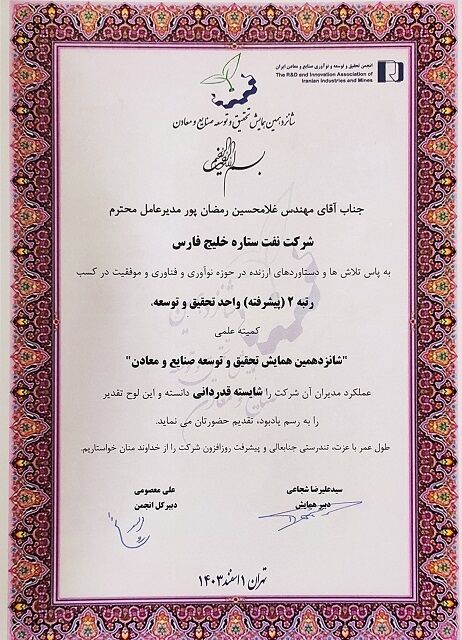 انجمن تحقیق و توسعه و نوآوری صنایع و معادن ایران
The R&D and Innovation Association of
Iranian Industries and Mines
شانزدهمین همایش تحقیق و توسعه صنایع و معادن
جناب آقای مهندس غلامحسین رمضان پور مدیرعامل محترم
شرکت نفت ستاره خلیج فارس
به پاس تلاش ها و دستاوردهای ارزنده در حوزه نوآوری و فناوری و موفقیت در کسب
رتبه ۲ (پیشرفته) واحد تحقیق و توسعه،
کمیته علمی
"شانزدهمین همایش تحقیق و توسعه صنایع و معادن"
عملکرد مدیران آن شرکت را شایسته قدردانی دانسته و این لوح تقدیر
را به رسم یادبود، تقدیم حضورتان می نماید.
طول عمر با عزت، تندرستی جنابعالی و پیشرفت روزافزون شرکت را از خداوند منان خواستاریم.
سیدعلیرضا شجاعی
دبیر همایش
علی معصومی
دبیر کل انجمن
تهران ۱ اسفند ۱۴۰۳